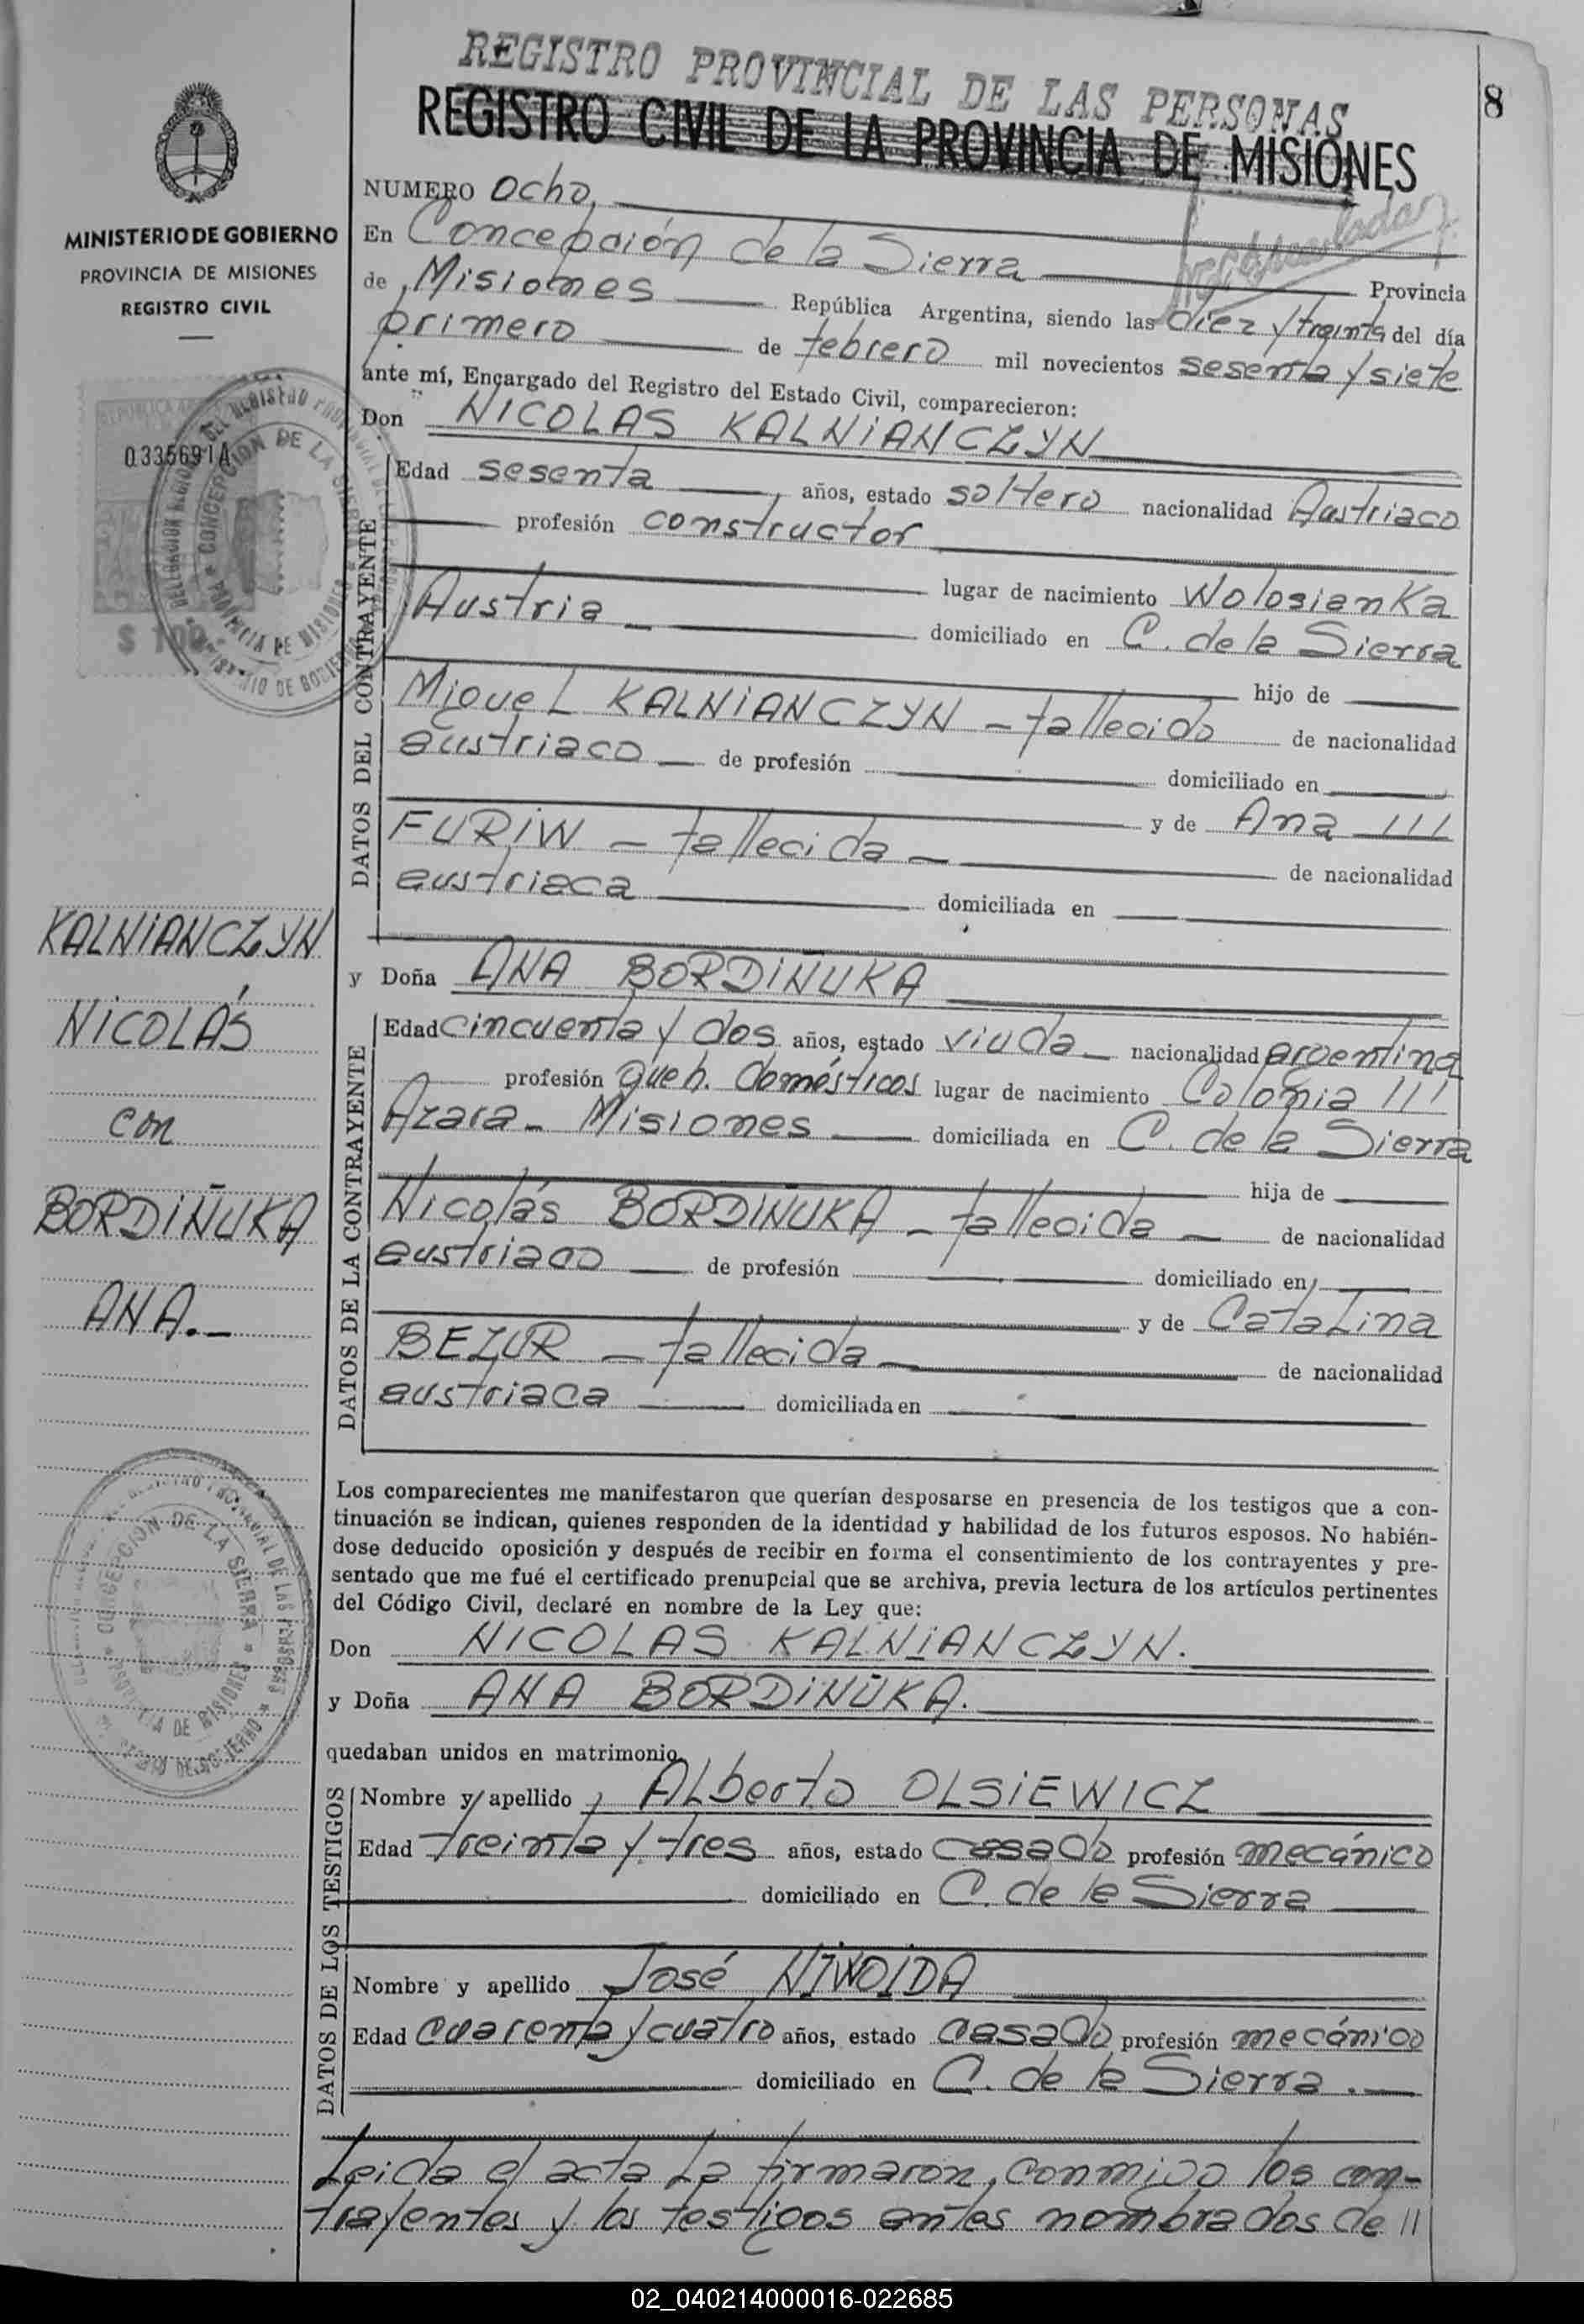 REGISTRO PROVINCIAL DE LAS PERSONAS
REGISTRO CIVIL DE LA PROVINCIA DE MISIONES
8
MINISTERIO DE GOBIERNO
PROVINCIA DE MISIONES
REGISTRO CIVIL
033569 1A
$ 100
KALNIANCZYN
NICOLÁS
con
BORDIÑUKA
ANA.-
NUMERO Ocho,
En Concepción de la Sierra Provincia
de Misiones República Argentina, siendo las diez y treinta del día
primero de febrero mil novecientos sesenta y siete
ante mí, Encargado del Registro del Estado Civil, comparecieron:
Don NICOLAS KALNIANCZYN
DATOS DEL CONTRAYENTE
Edad sesenta años, estado soltero nacionalidad Austriaco
profesión constructor
lugar de nacimiento Wolosianka
Austria domiciliado en C. de la Sierra
hijo de
Miguel KALNIANCZYN - fallecido de nacionalidad
austriaco de profesión domiciliado en
y de Ana ///
FURIW - fallecida - de nacionalidad
austriaca domiciliada en
y Doña ANA BORDIÑUKA
DATOS DE LA CONTRAYENTE
Edad cincuenta y dos años, estado viuda nacionalidad argentina
profesión queh. domésticos lugar de nacimiento Colonia ///
Azara - Misiones domiciliada en C. de la Sierra
hija de
Nicolás BORDIÑUKA - fallecida - de nacionalidad
austriaco de profesión domiciliado en
y de Catalina
BEZUR - fallecida - de nacionalidad
austriaca domiciliada en
Los comparecientes me manifestaron que querían desposarse en presencia de los testigos que a con-
tinuación se indican, quienes responden de la identidad y habilidad de los futuros esposos. No habién-
dose deducido oposición y después de recibir en forma el consentimiento de los contrayentes y pre-
sentado que me fué el certificado prenupcial que se archiva, previa lectura de los artículos pertinentes
del Código Civil, declaré en nombre de la Ley que:
Don NICOLAS KALNIANCZYN.
y Doña ANA BORDIÑUKA.
quedaban unidos en matrimonio
DATOS DE LOS TESTIGOS
Nombre y apellido Alberto OLSIEWICZ
Edad treinta y tres años, estado casado profesión mecánico
domiciliado en C. de la Sierra
Nombre y apellido José NIWOIDA
Edad cuarenta y cuatro años, estado casado profesión mecánico
domiciliado en C. de la Sierra.-
Leida el acta la firmaron, conmigo los con-
trayentes y los testigos antes nombrados de //
02_040214000016-022685